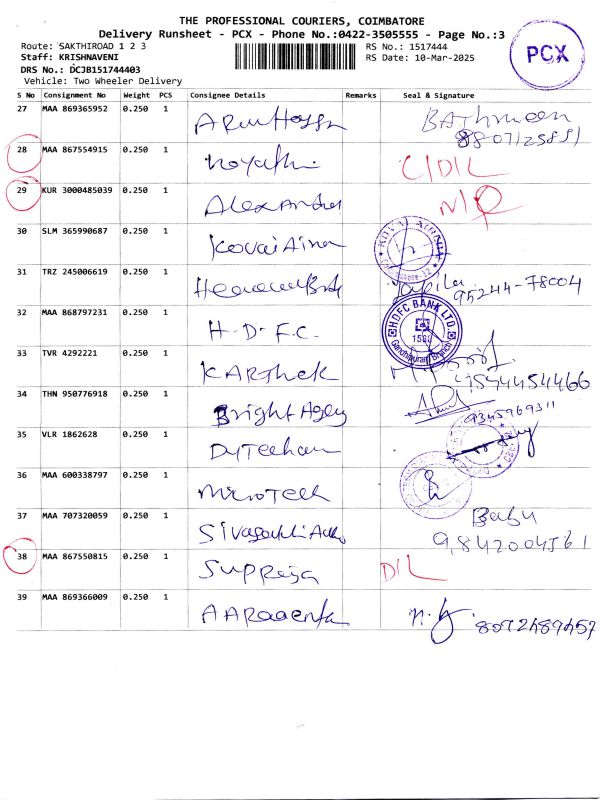 THE PROFESSIONAL COURIERS, COIMBATORE
Delivery Runsheet - PCX - Phone No.:0422-3505555 - Page No.:3
Route: SAKTHIROAD 1 2 3
RS No.: 1517444
Staff: KRISHNAVENI
RS Date: 10-Mar-2025
DRS No.: DCJB151744403
Vehicle: Two Wheeler Delivery
PCX
S No Consignment No Weight PCS Consignee Details Remarks Seal & Signature
27 MAA 869365952 0.250 1
28 MAA 867554915 0.250 1 C/D/L
29 KUR 3000485039 0.250 1 Alexander
30 SLM 365990687 0.250 1 Kovai
31 TRZ 245006619 0.250 1 95244-78004
32 MAA 868797231 0.250 1 H.D.F.C. HDFC BANK LTD.
33 TVR 4292221 0.250 1 KARthek
34 THN 950776918 0.250 1 Bright Agey 9345969311
35 VLR 1862628 0.250 1
36 MAA 600338797 0.250 1 MicroTeck
37 MAA 707320059 0.250 1 Babu
9842004561
38 MAA 867550815 0.250 1 Supreja D/L
39 MAA 869366009 0.250 1